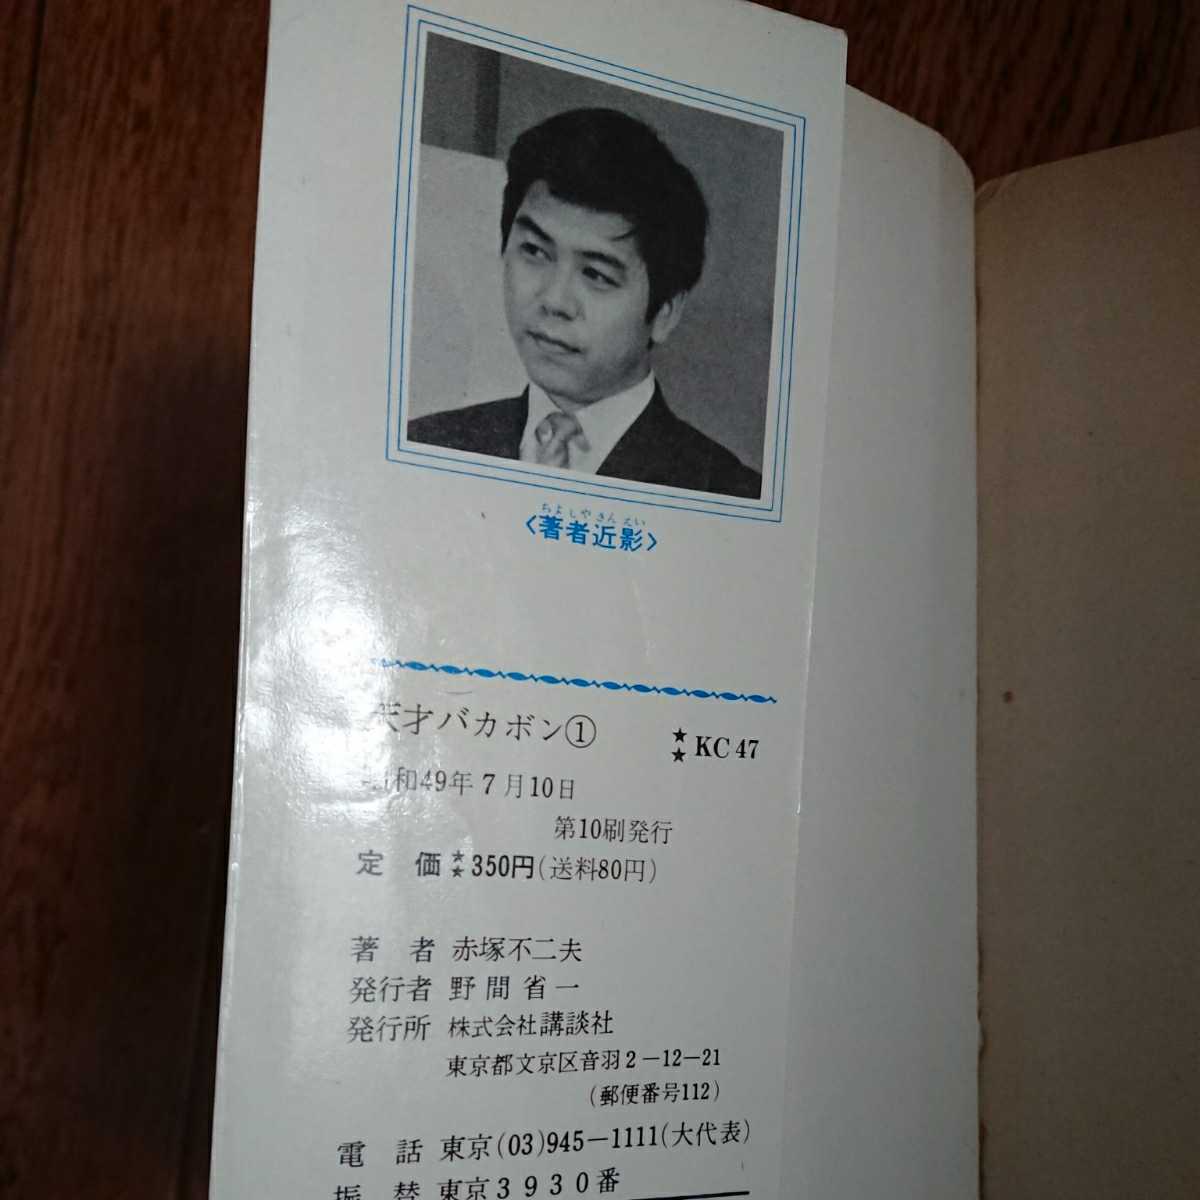 ちよしやきんえい
〈著者近影〉
天才バカボン①
★★ KC47
昭和49年7月10日
第10刷発行
定 価 ★★ 350円(送料80円)
著 者 赤塚不二夫
発行者 野間省一
発行所 株式会社講談社
東京都文京区音羽2-12-21
(郵便番号112)
電 話 東京(03)945-1111(大代表)
振 替 東京3930番